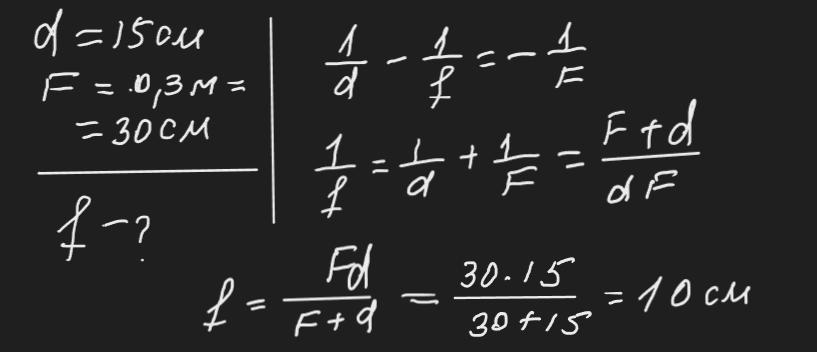 d = 15 см
F = 0,3 м =
= 30 см
f - ?
1/d - 1/f = - 1/F
1/f = 1/d + 1/F = F + d / dF
f = Fd / F + d = 30 · 15 / 30 + 15 = 10 см